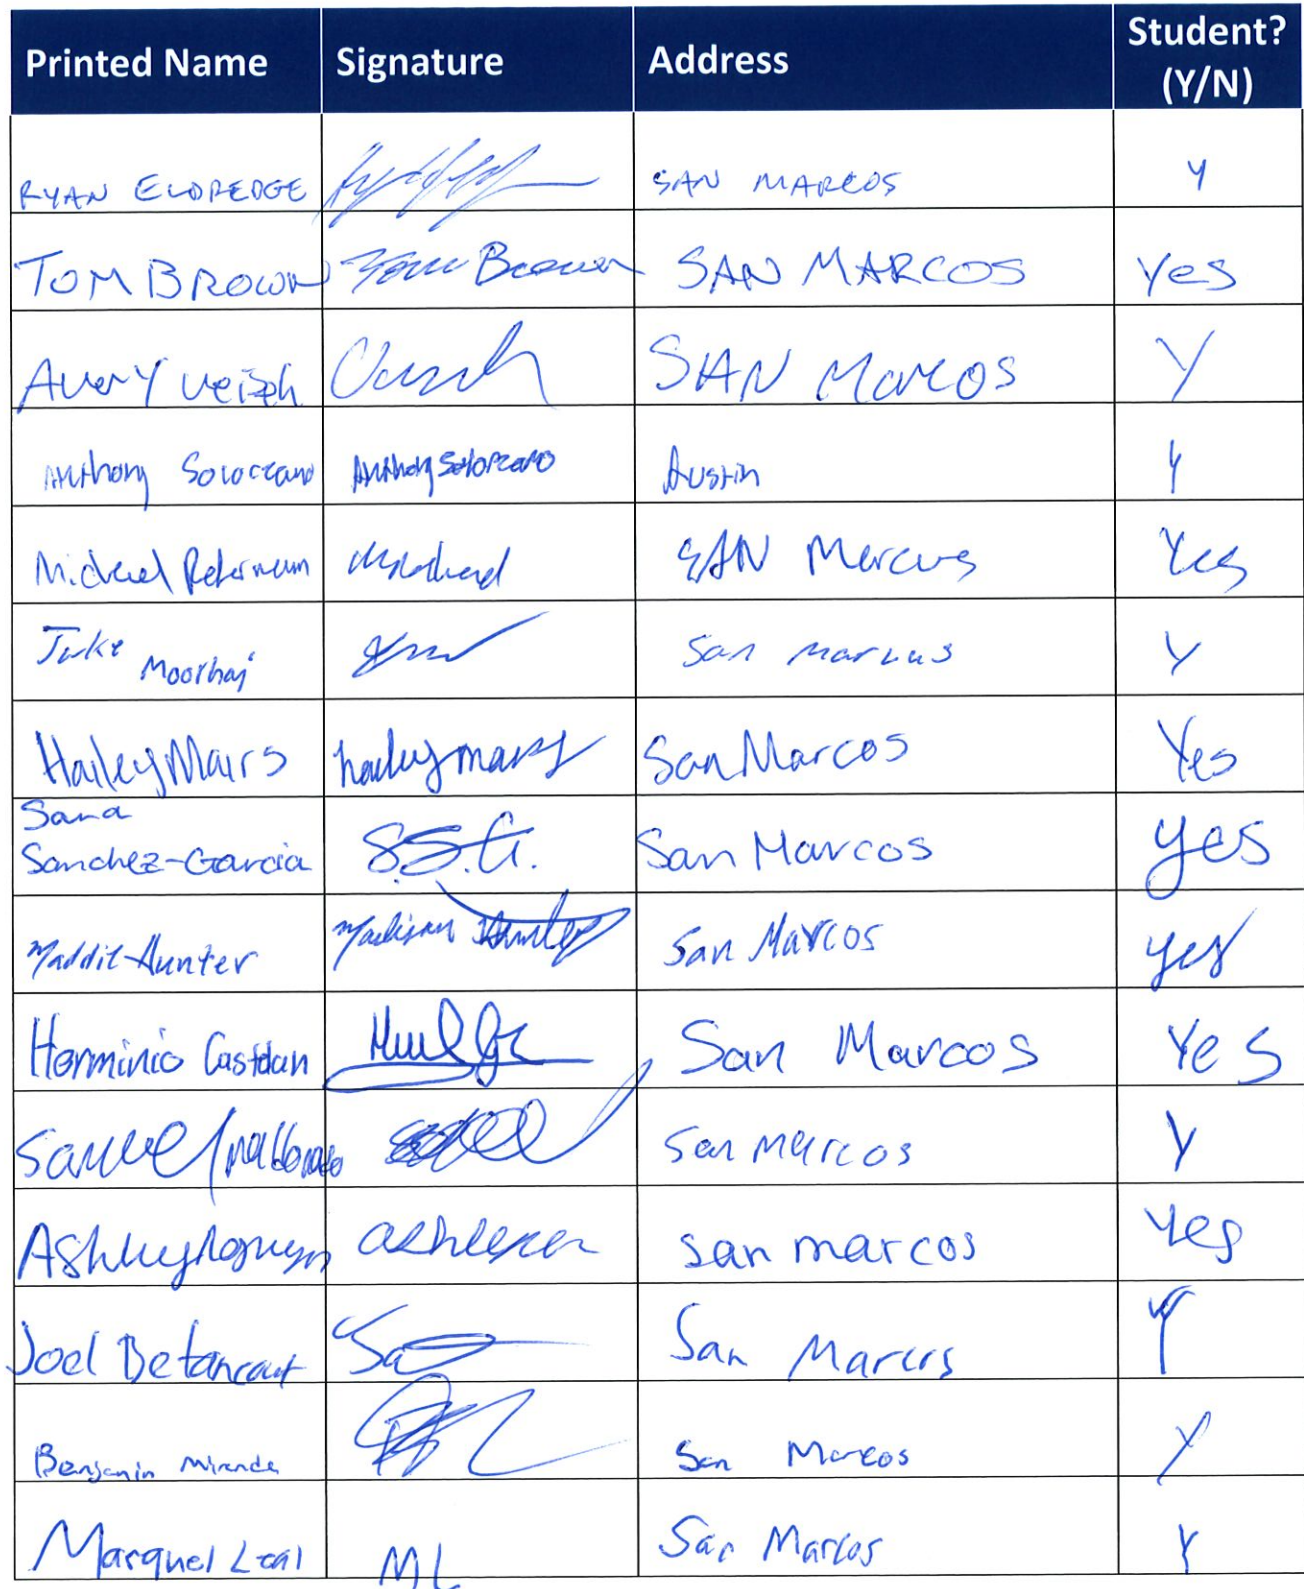 Printed Name Signature Address Student? (Y/N)
RYAN ELDREDGE SAN MARCOS Y
TOM BROWN Tom Brown SAN MARCOS Yes
Avery Veitch SAN Marcos Y
Anthony Solorzano Anthony Solorzano Austin Y
Michael SAN Marcus Yes
Jake San marcus Y
Hailey Mairs hailey mairs San Marcos Yes
Sana
Sanchez-Garcia S.S.G. San Marcos yes
Maddie Hunter Madison Hunter San Marcos yes
Herminio San Marcos Yes
Samuel Maldonado San marcos Y
Ashley san marcos Yes
Joel Betancourt San Marcos Y
Benjamin Miranda San Marcos Y
Marquel Leal ML San Marcos Y